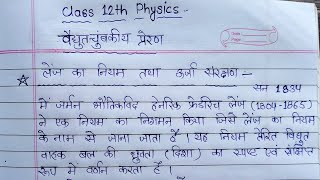 Class 12th Physics -
वैद्युतचुंबकीय प्रेरण
लेंज का नियम तथा ऊर्जा संरक्षण -
सन 1834
में जर्मन भौतिकविद हेनरिक फ्रेडरिच लेंज (1804-1865)
ने एक नियम का निगमन किया जिसे लेंज का नियम
के नाम से जाना जाता है। यह नियम प्रेरित विद्युत
वाहक बल की ध्रुवता (दिशा) का स्पष्ट एवं संक्षिप्त
रूप में वर्णन करता है।